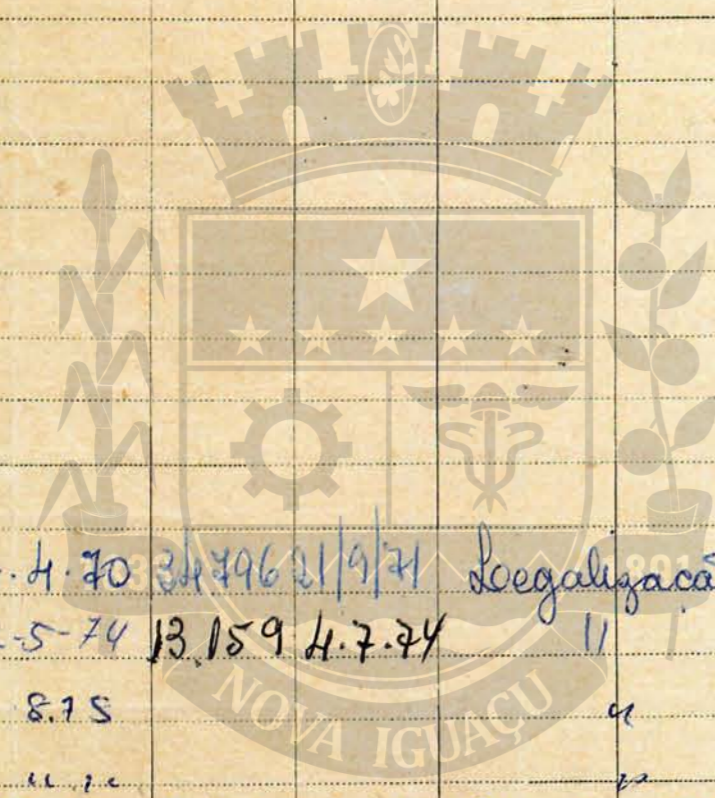 .4.70 34796 21/9/71 Legalizacã
-5-74 13.159 4.7.74 "
8.75 "
" " "
NOVA IGUAÇU